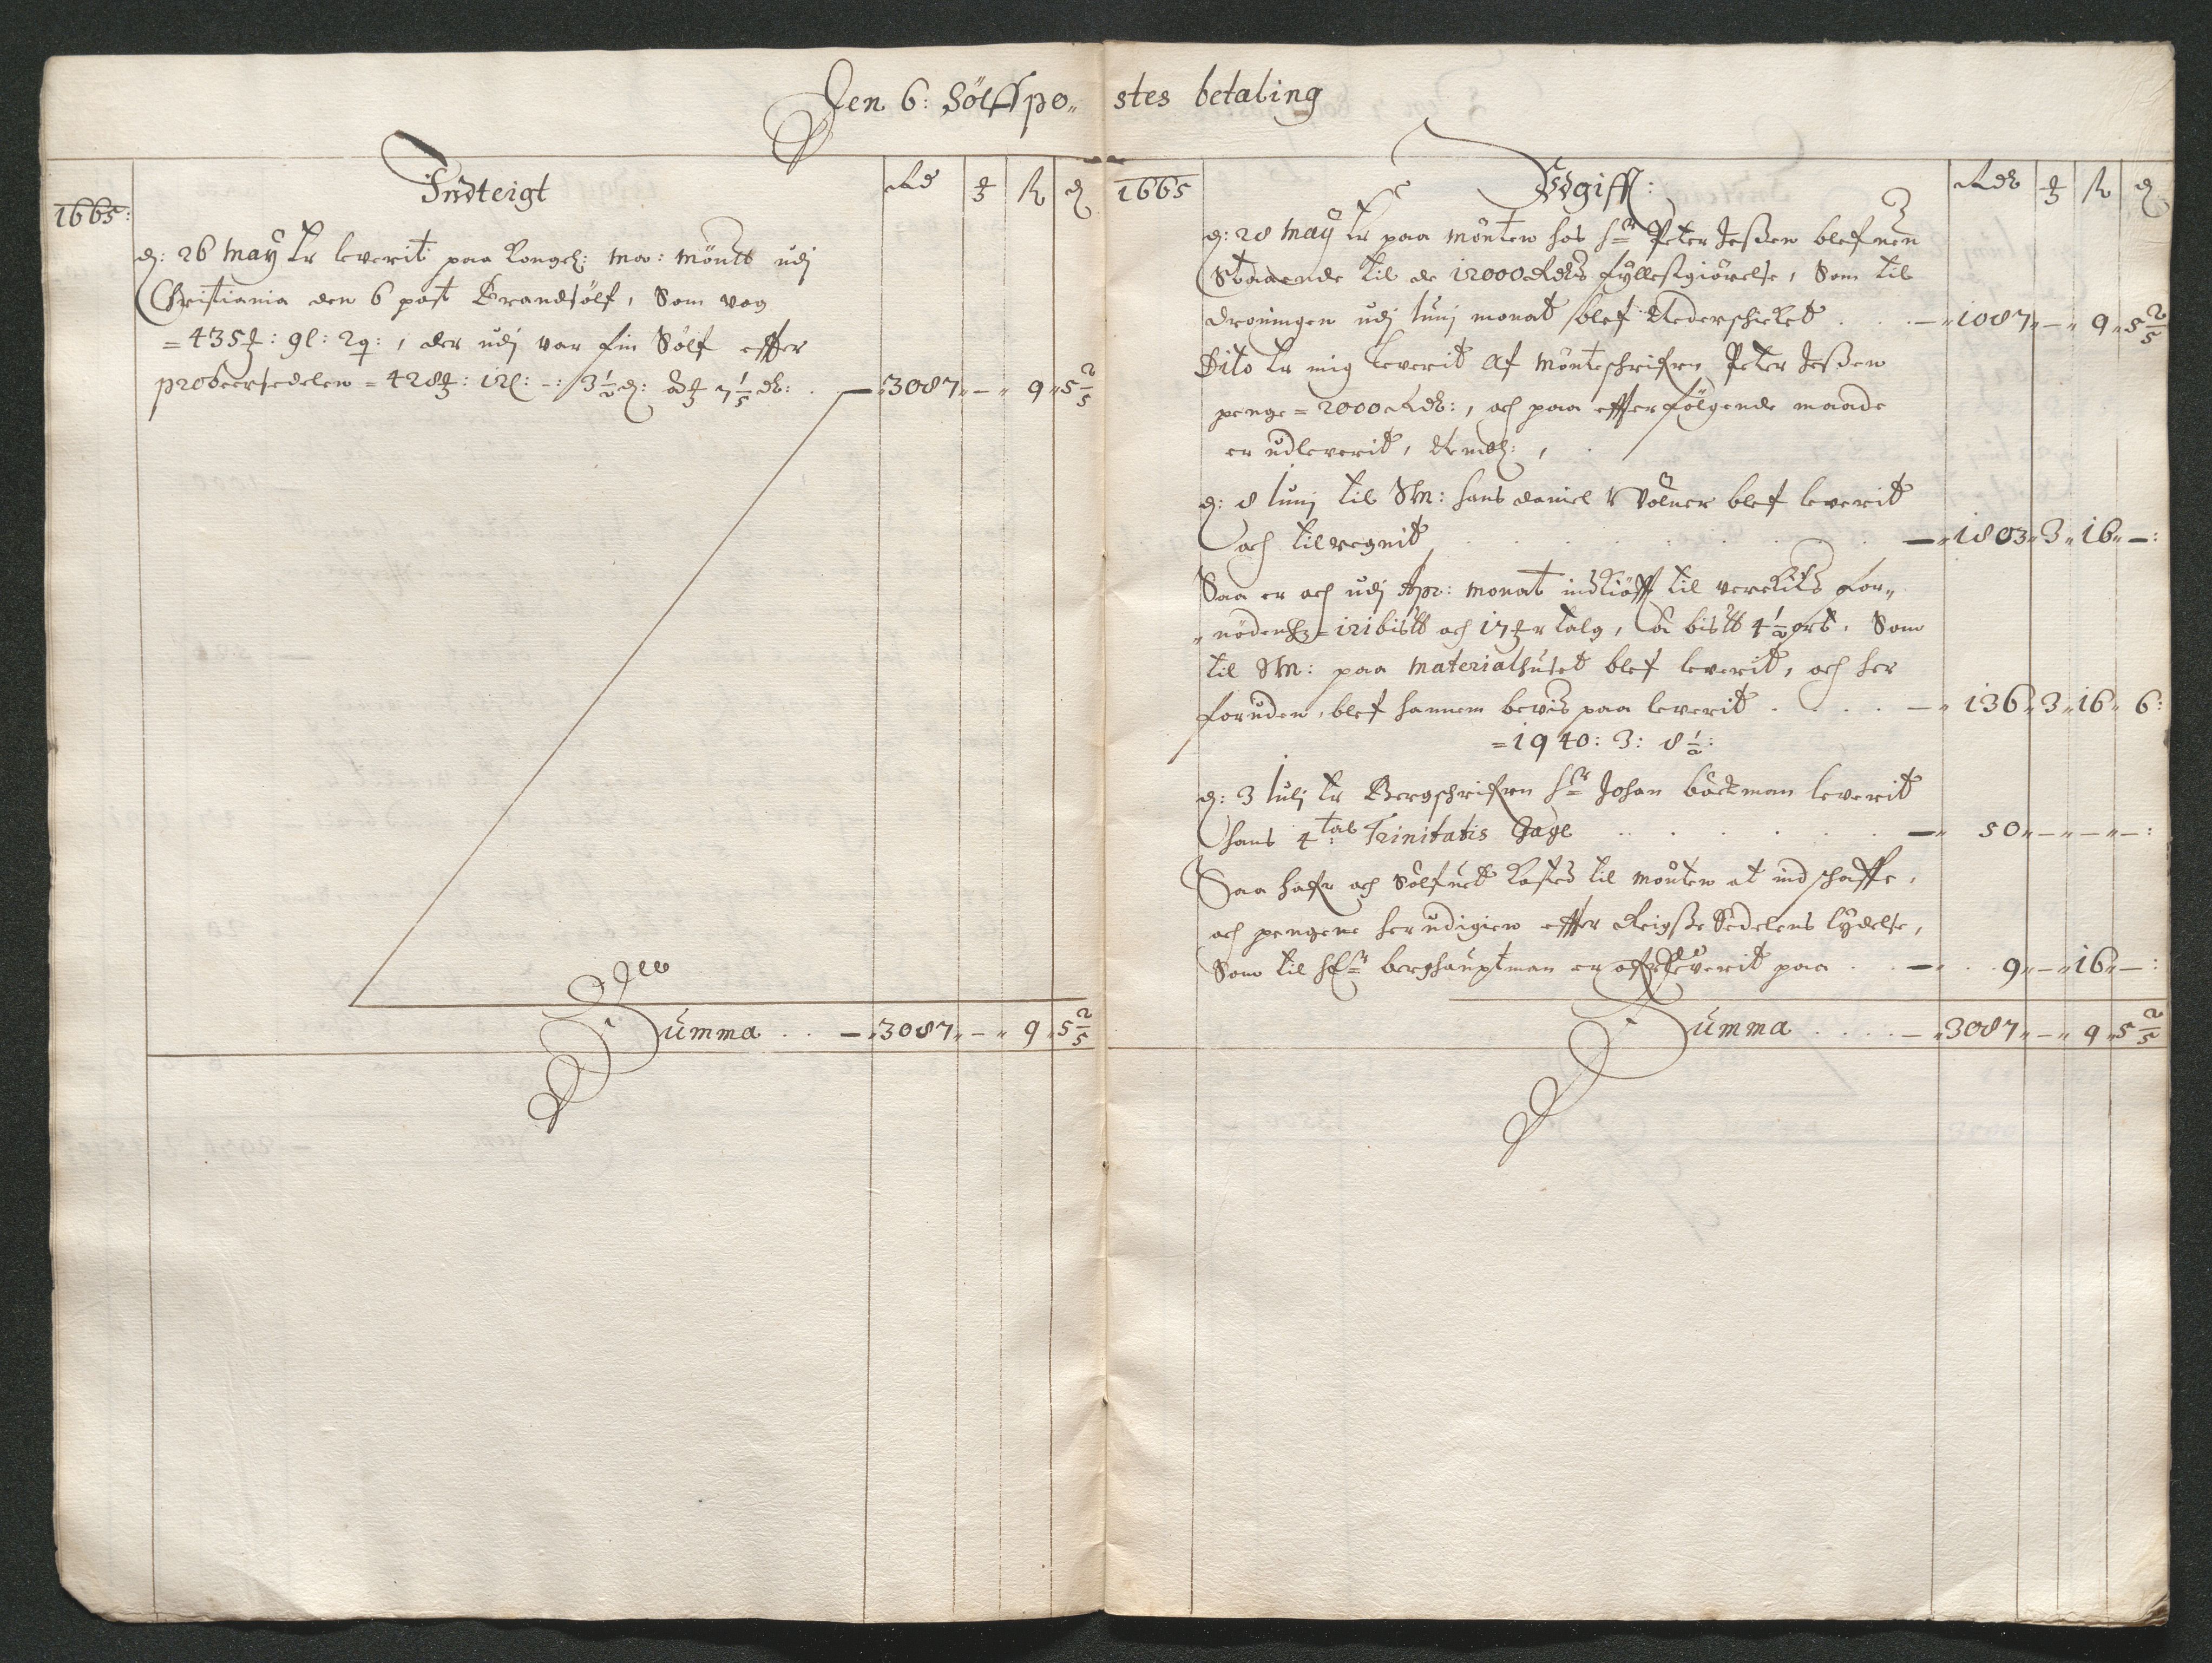 Den 6: Sölffpo„ stes betaling
Indteigt
Rd ℔ ß ₰
1665:
d: 26 Maÿ Er leverit paa Kongel: Maÿ: Mÿntt udj
Christiania den 6 post Brandsölf, Som vog
= 435 ℔: 9 l: 2 q:, der udj var fin Sölf effter
probeersedelen = 428 ℔: 12 l: –: 3 1/2 ₰: à ℔ 7 1/5 Rd: . — „ 3087 „ – „ 9 „ 5 2/5
Summa . . — „ 3087 „ – „ 9 „ 5 2/5
1665
Udgifft:
Rdr ℔ ß ₰
d: 28 Maÿ Er paa Mönten hos Hr Peter Jeßen blefuen
Staaende til de 12000 Rdrs fyllestgiörelse, Som til
Droningen udj Junj Monat blef Nederschicket . . . — „ 1087 „ – „ 9 „ 5 2/5
Dito Er mig leverit af Mönteschrifren Peter Jeßen
penge = 2000 Rdr:, och paa effterfölgende maade
er udleverit, Neml:,
d: 8 Junj til Sr: Hans Daniel Völner blef leverit
och tilregnit . . . — „ 1803 „ 3 „ 16 „ – :
Saa er och udj Apr: Monat indkiöfft til verckitz for„
„nödenh = 121 bistt och 17 ℔r talg, à bistt 4 1/2 ort, Som
til Sr: paa Materialhuset blef leverit, och her
foruden, blef hannem bevis paa leverit . . . — „ 136 „ 3 „ 16 „ 6:
= 1940: 3: 8 1/2:
d: 3 Julj Er Bergschrifren Hr Johan Backman leverit
Hans 4tal Trinitatis Gage . . . — „ 50 „ – „ – „ – :
Saa hafr och Sölfuet kosted til Mönten at indschaffe,
och pengene herudigien effter Reigße Sedelens lydelse,
Som til Hr Berghauptman er ofrleverit paa . . — „ 9 „ – „ 16 „ – :
Summa . . . . — „ 3087 „ – „ 9 „ 5 2/5